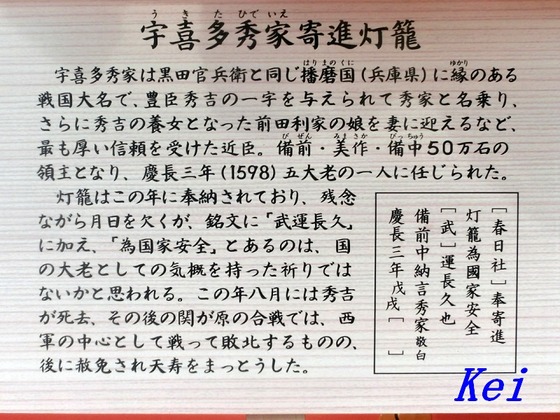 宇喜多秀家寄進灯籠
うきたひでいえ
宇喜多秀家は黒田官兵衛と同じ播磨国(兵庫県)に縁のある
はりまのくに
ゆかり
戦国大名で、豊臣秀吉の一字を与えられて秀家と名乗り、
さらに秀吉の養女となった前田利家の娘を妻に迎えるなど、
最も厚い信頼を受けた近臣。備前・美作・備中50万石の
びぜん
みまさか
びっちゅう
領主となり、慶長三年(1598)五大老の一人に任じられた。
灯籠はこの年に奉納されており、残念
ながら月日を欠くが、銘文に「武運長久」
に加え、「為国家安全」とあるのは、国
の大老としての気概を持った祈りでは
ないかと思われる。この年八月には秀吉
が死去、その後の関が原の合戦では、西
軍の中心として戦って敗北するものの、
後に赦免され天寿をまっとうした。
[春日社]奉寄進
灯籠為國家安全
[武]運長久也
備前中納言秀家敬白
慶長三年戊戌[ ]
Kei